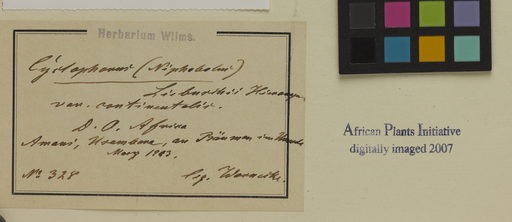 Herbarium Wilms.
Cyclophorus (Niphobolus)
Hieronym.
var. continentalis.
D. O. Afrika
Amani, Usambara, an Bäumen im
März 1903.
No 328
leg. Warnecke.
African Plants Initiative
digitally imaged 2007